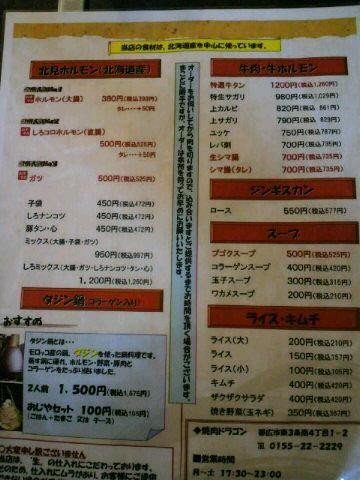 当店の食材は、北海道産を中心に使っています。
北見ホルモン(北海道産)
ホルモン(大腸) 380円(税込399円)
タレ…+50円
しろコロホルモン(直腸)
500円(税込525円)
タレ…+50円
ガツ 500円(税込525円)
子袋 450円(税込472円)
しろナンコツ 450円(税込472円)
豚タン・心 450円(税込472円)
ミックス(大腸・子袋・ガツ)
950円(税込997円)
しろミックス(大腸・ガツ・しろナンコツ・タン・心)
1,200円(税込1,260円)
タジン鍋(コラーゲン入り)
おすすめ
タジン鍋とは…
モロッコ産の鍋、タジンを使った鍋料理です。
蒸す鍋に優れ、ホルモン・野菜・豚肉と
コラーゲンをたっぷり使いました。
2人前 1,500円(税込1,575円)
おじやセット 100円(税込105円)
(ごはん+たまご 又は チーズ)
大変申し訳ございません
当店は、「生」の仕入れにこだわっております。
オーダーをお伺いしてから肉を切りますので、込み合いますとご提供するまでお時間を頂く場合がございます。
まことに勝手ですが、オーダーは余裕を持ってお早めにお願いいたします。
牛肉・牛ホルモン
特選牛タン 1200円(税込1,260円)
特生サガリ 980円(税込1,029円)
上カルビ 820円(税込 861円)
上サガリ 790円(税込 829円)
ユッケ 750円(税込787円)
レバ刺 700円(税込735円)
生シマ腸 700円(税込735円)
シマ腸(タレ) 700円(税込735円)
ジンギスカン
ロース 550円(税込577円)
スープ
プゴクスープ 500円(税込525円)
コラーゲンスープ 400円(税込420円)
玉子スープ 300円(税込315円)
ワカメスープ 200円(税込210円)
ライス・キムチ
ライス(大) 200円(税込210円)
ライス 150円(税込157円)
ライス(小) 100円(税込105円)
キムチ 400円(税込420円)
ザクザクサラダ 400円(税込420円)
焼き野菜(玉ネギ) 350円(税込367円)
焼肉ドラゴン 帯広市東3条南4丁目1-2
☎ 0155-22-2229
営業時間
月~土 17:30~23:00